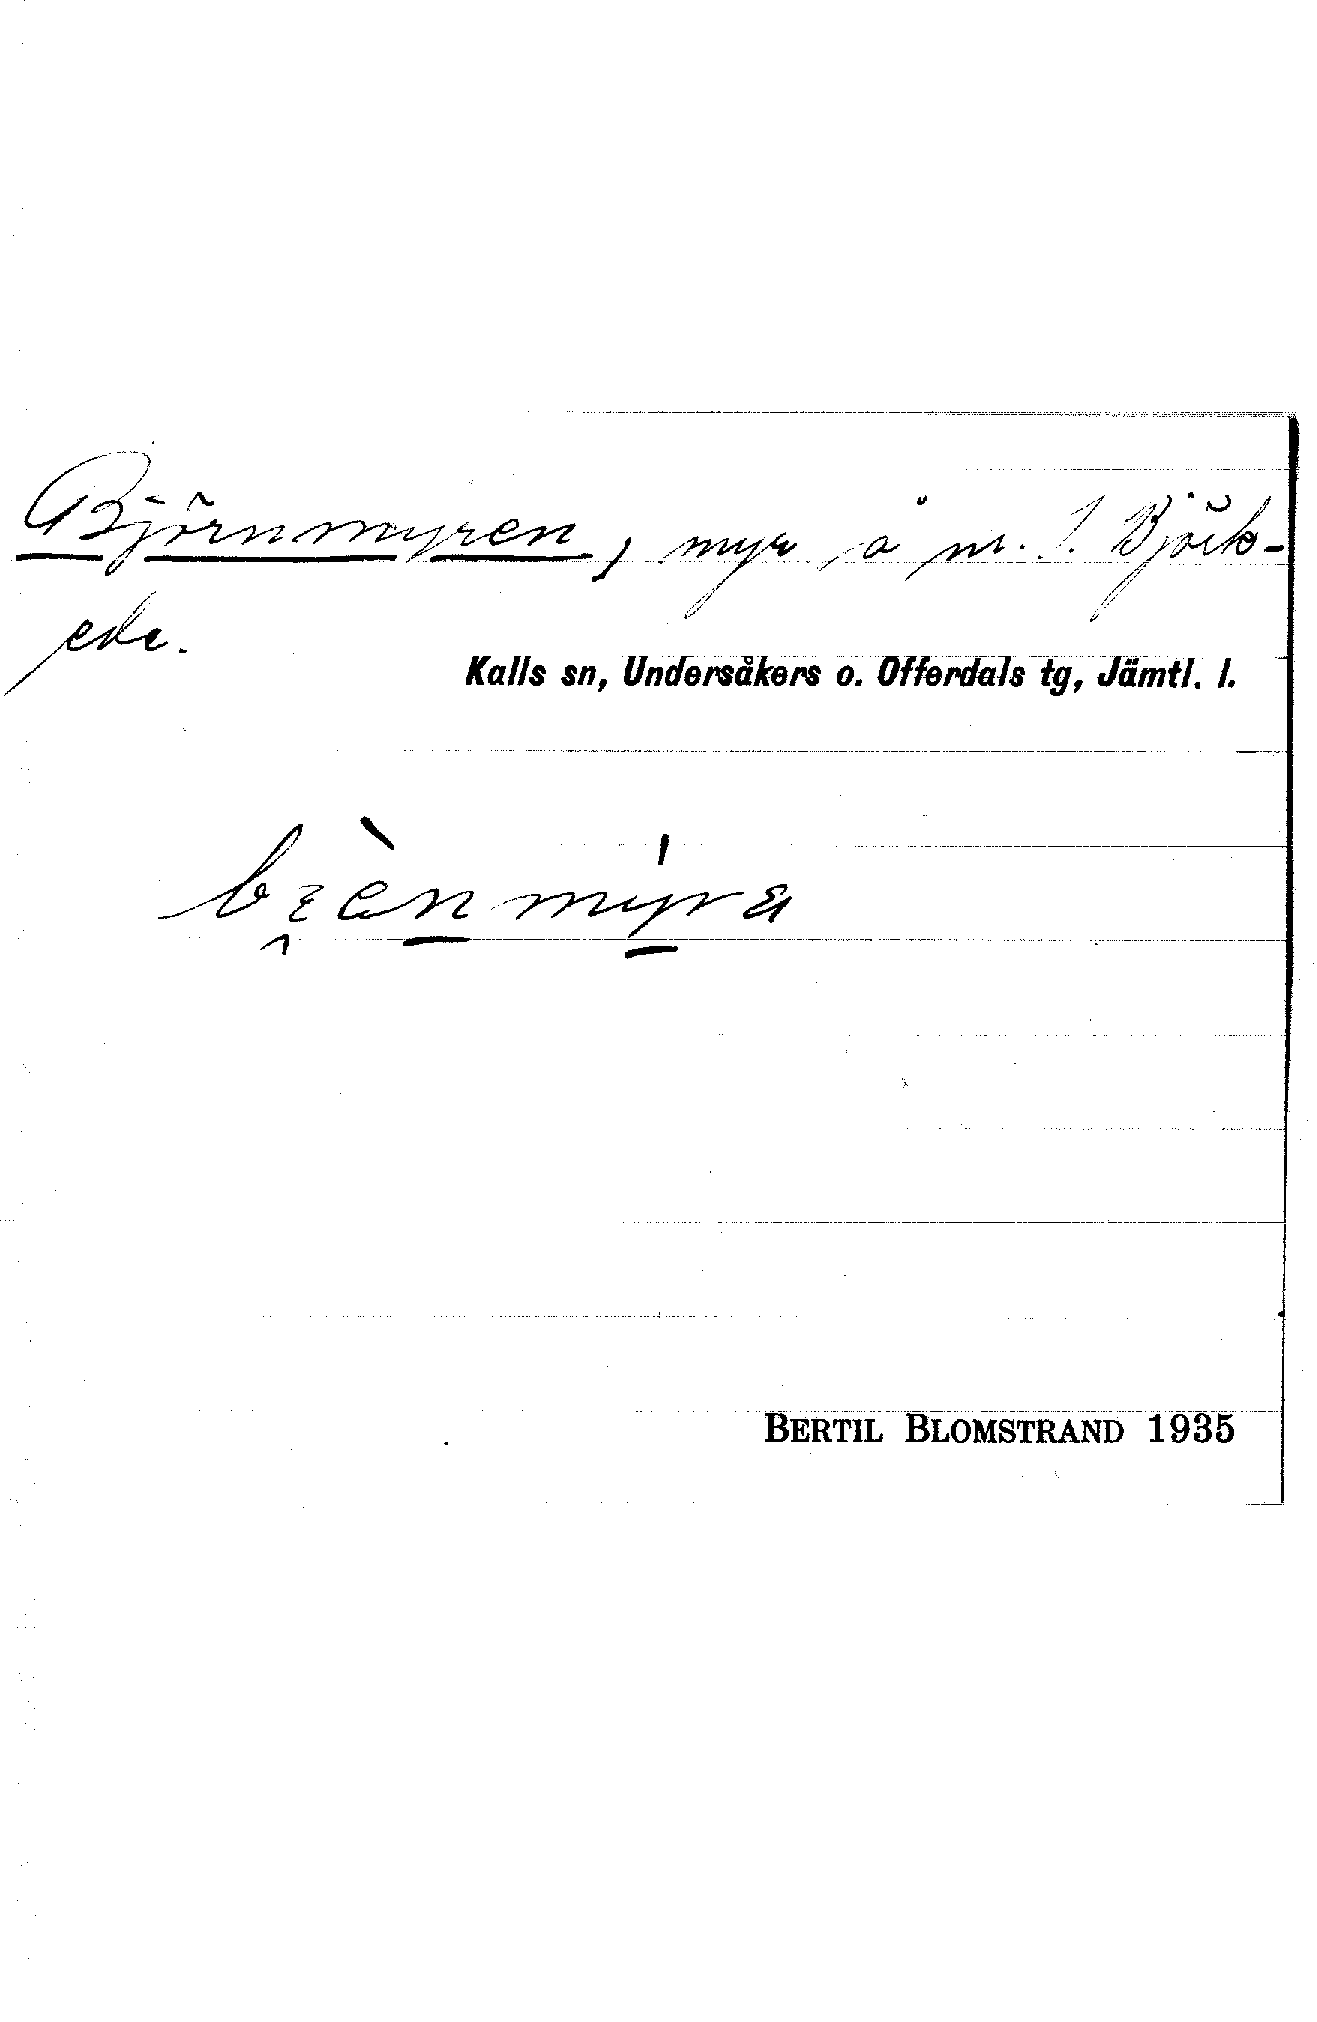 Björnmyren, myr å nr. 1 Björk-
ede.
Kalls sn, Undersåkers o. Offerdals tg, Jämtl. l.
BERTIL BLOMSTRAND 1935